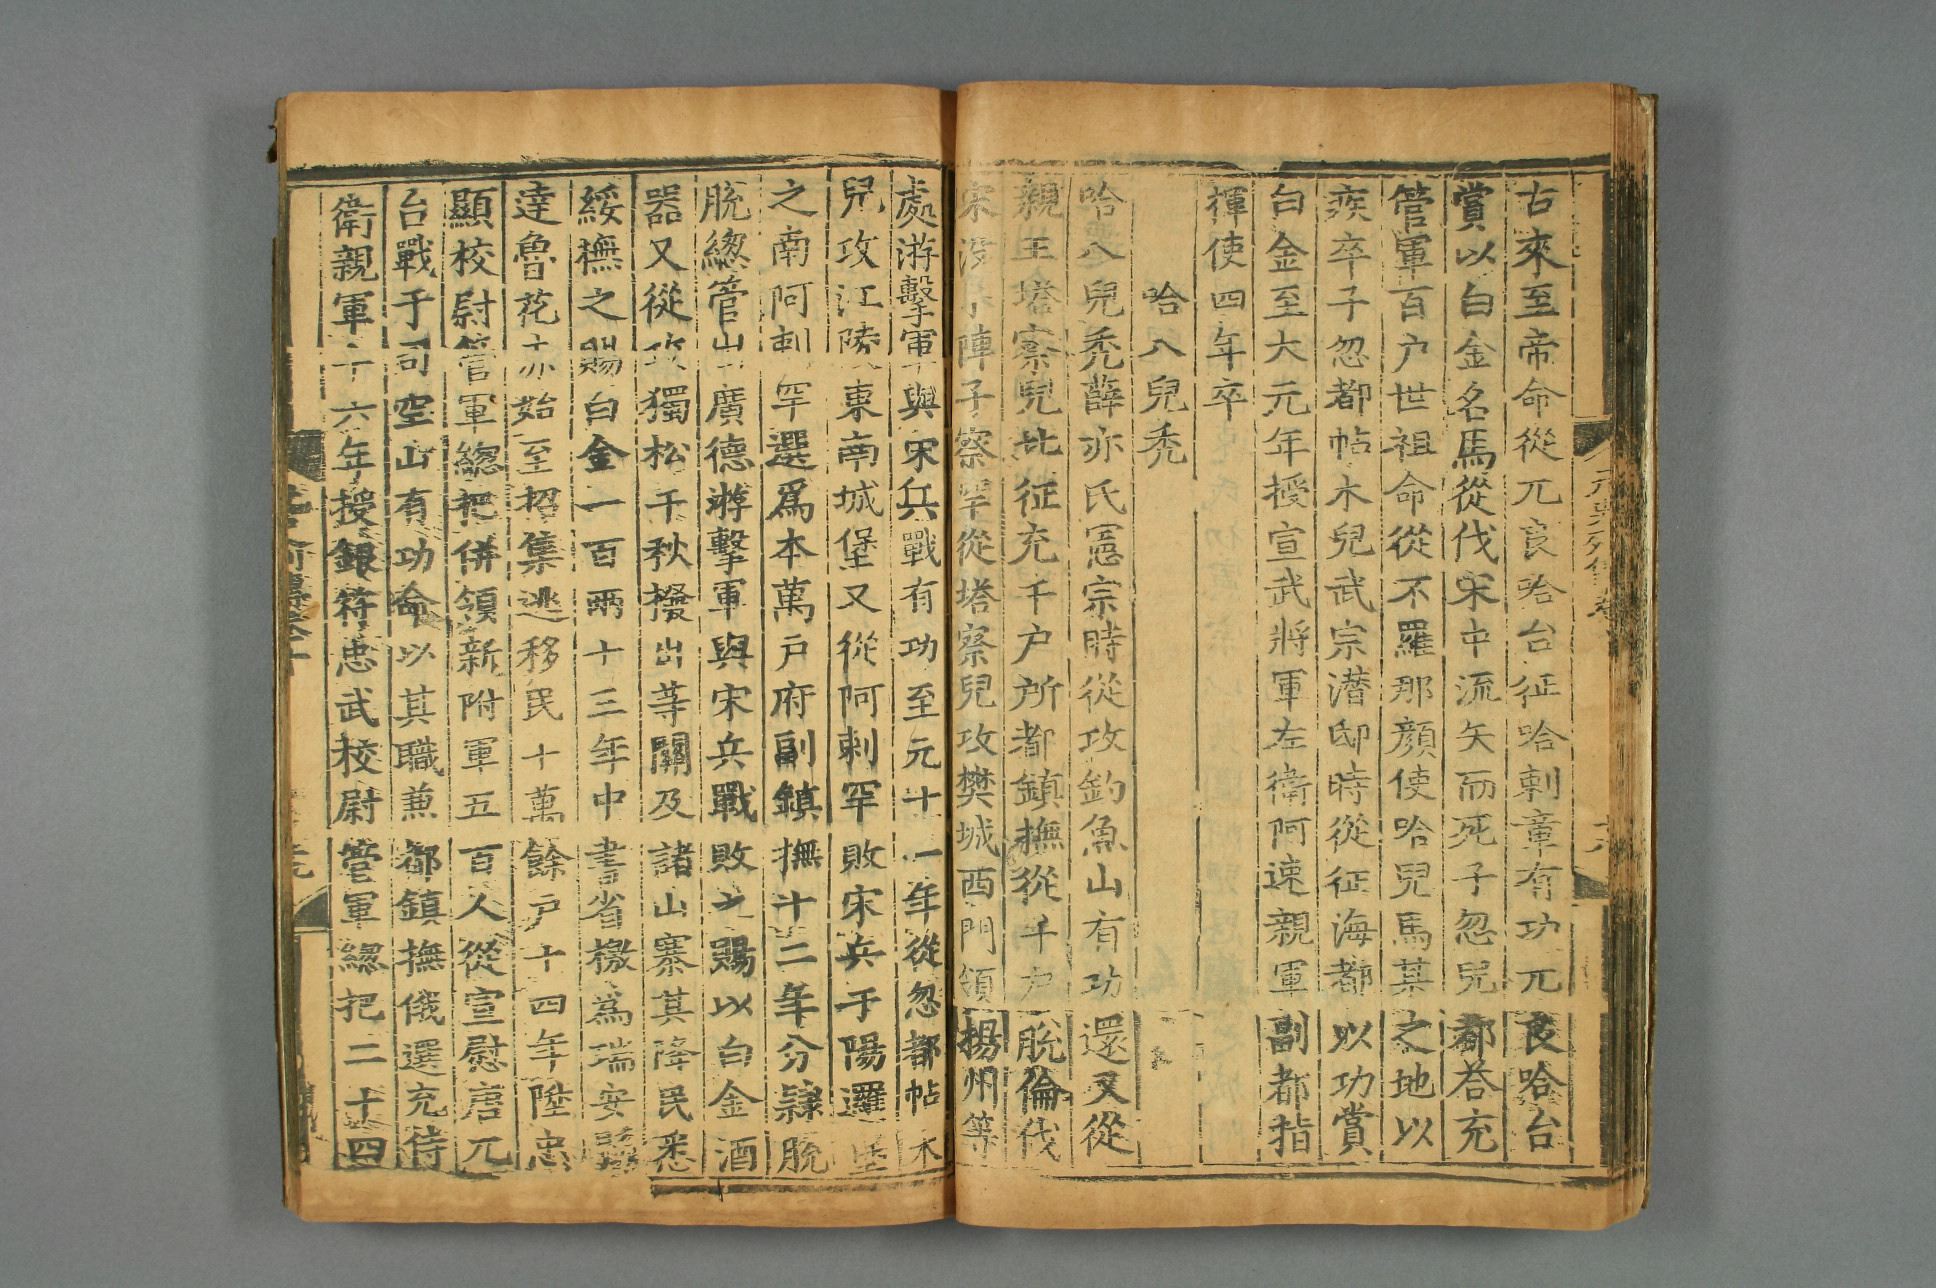 古來至帝命從兀良哈台征哈剌章有功兀良哈台
賞以白金名馬從伐宋中流矢而死子忽兒都荅充
管軍百户世祖命從不羅那顏使哈兒馬某之地以
疾卒子忽都帖木兒武宗潜邸時從征海都以功賞
白金至大元年授宣武將軍左衛阿速親軍副都指
揮使四年卒
哈八兒禿
哈八兒禿薛亦氏憲宗時從攻釣魚山有功還又從
親王塔察兒北征充千户所都鎮撫從千户脱倫伐
宋没于陣子察罕從塔察兒攻樊城西門領揚州等
處游擊軍與宋兵戰有功至元十一年從忽都帖木
兒攻江陵東南城堡又從阿剌罕敗宋兵于陽邏堡
之南阿剌罕選爲本萬戶府副鎮撫十二年分隷脱
脱緫管出廣德游擊軍與宋兵戰敗之賜以白金酒
器又從攻獨松千秋襏出等關及諸山寨其降民悉
綏撫之賜白金一百兩十三年中書省檄爲瑞安縣
達魯花赤始至招集逃移民十萬餘戸十四年陞忠
顯校尉管軍緫把併領新附軍五百人從宣慰唐兀
台戰于司空山有功命以其職兼都鎮撫俄選充侍
衛親軍十六年授銀符忠武校尉管軍緫把二十四